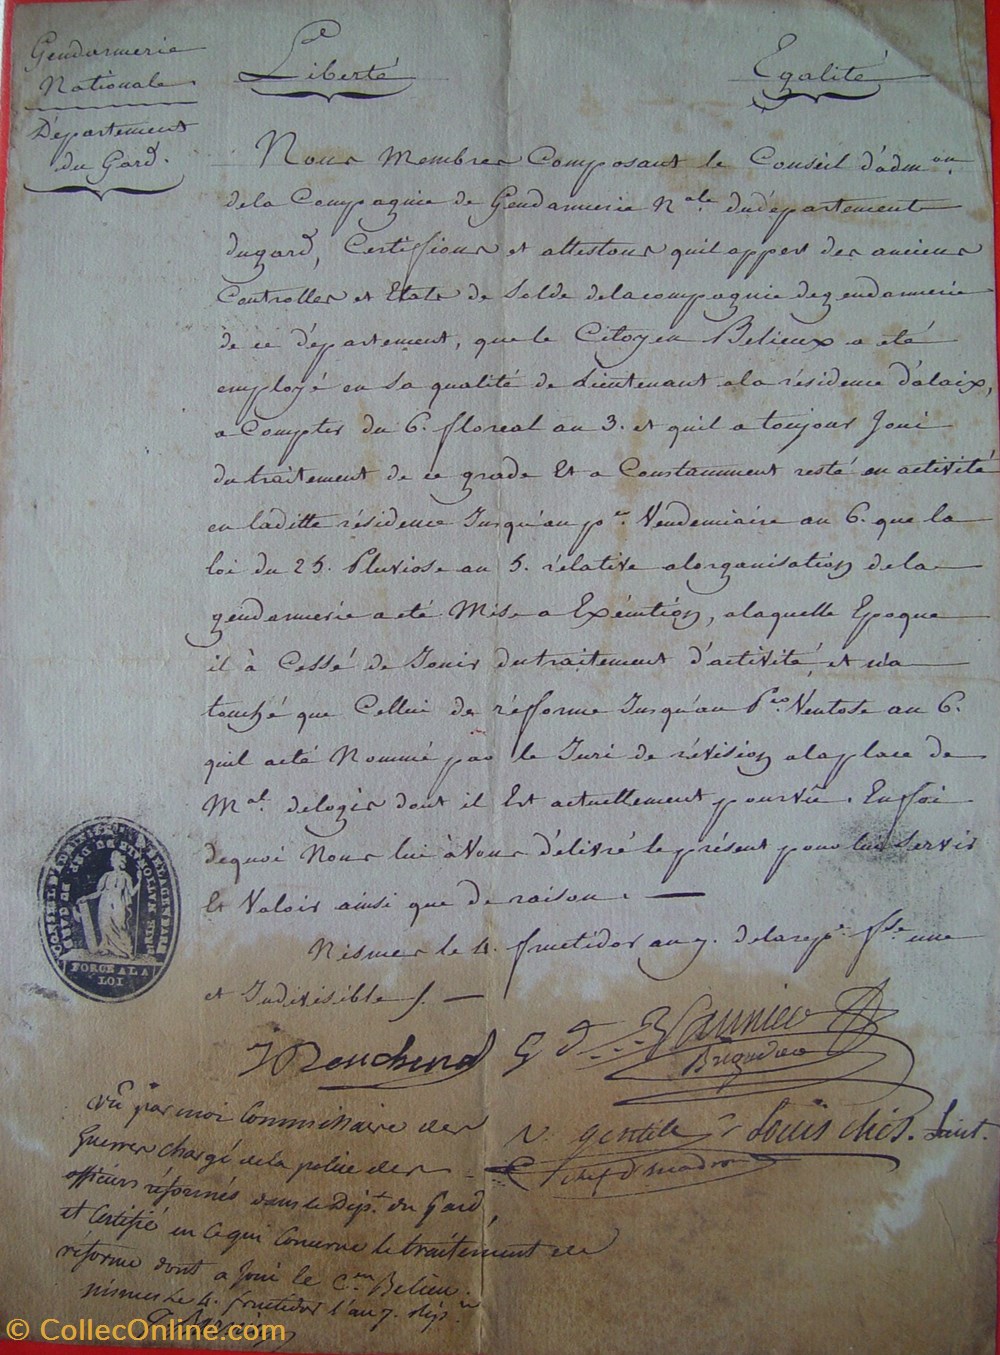 Gendarmerie
Nationale
Département
du Gard.
Liberté
Egalité
Nous Membres Composant le Conseil d'adm.on
de la Compagnie de Gendarmerie N.ale du département
du gard, Certiffions et attestons quil appert des anciens
Controlles et Etats de Solde delacompagnie degendarmerie
de ce département, que le Citoyen Belieux a été
employé en sa qualité de Lieutenant ala résidence d'alaix,
a Compter du 6. floreal an 3. et quil a toujour Joui
du traitement de ce grade Et a Constamment resté en activité
en laditte résidence Jusqu'au p.er Vendemiaire an 6. que la
loi du 25. Pluviose an 5. rélative alorganisation de la
gendarmerie a eté Mise a Exécution, alaquelle Epoque
il à Cessé de Jouir dutraitement d'activité et n'a
touché que Cellui de réfforme Jusqu'au P.er Ventose an 6.
quil aeté Nommé par le Juri de révision alaplace de
M.al delogis dont il Est actuellement pourvû. Enfoi
dequoi Nous lui àvons délivré le présent pour lui Servir
Et Valoir ainsi que de raison. —
Nismes le 4. fructidor an 7. delarep.e f.se une
et Indivisible /. —
G d
Brigadier
gentile
Louis
chef d'
Lieut.
Vû par moi Commissaire des
Guerres chargé de la police des
officiers réformés dans le Dép.t du Gard,
et Certifié en cequi Concerne le traitement de
réforme dont a Joui le C.en Belieu.
nismes Le 4. fructidor l'an 7. rép.n
FORCE A LA
LOI
© CollecOnline.com